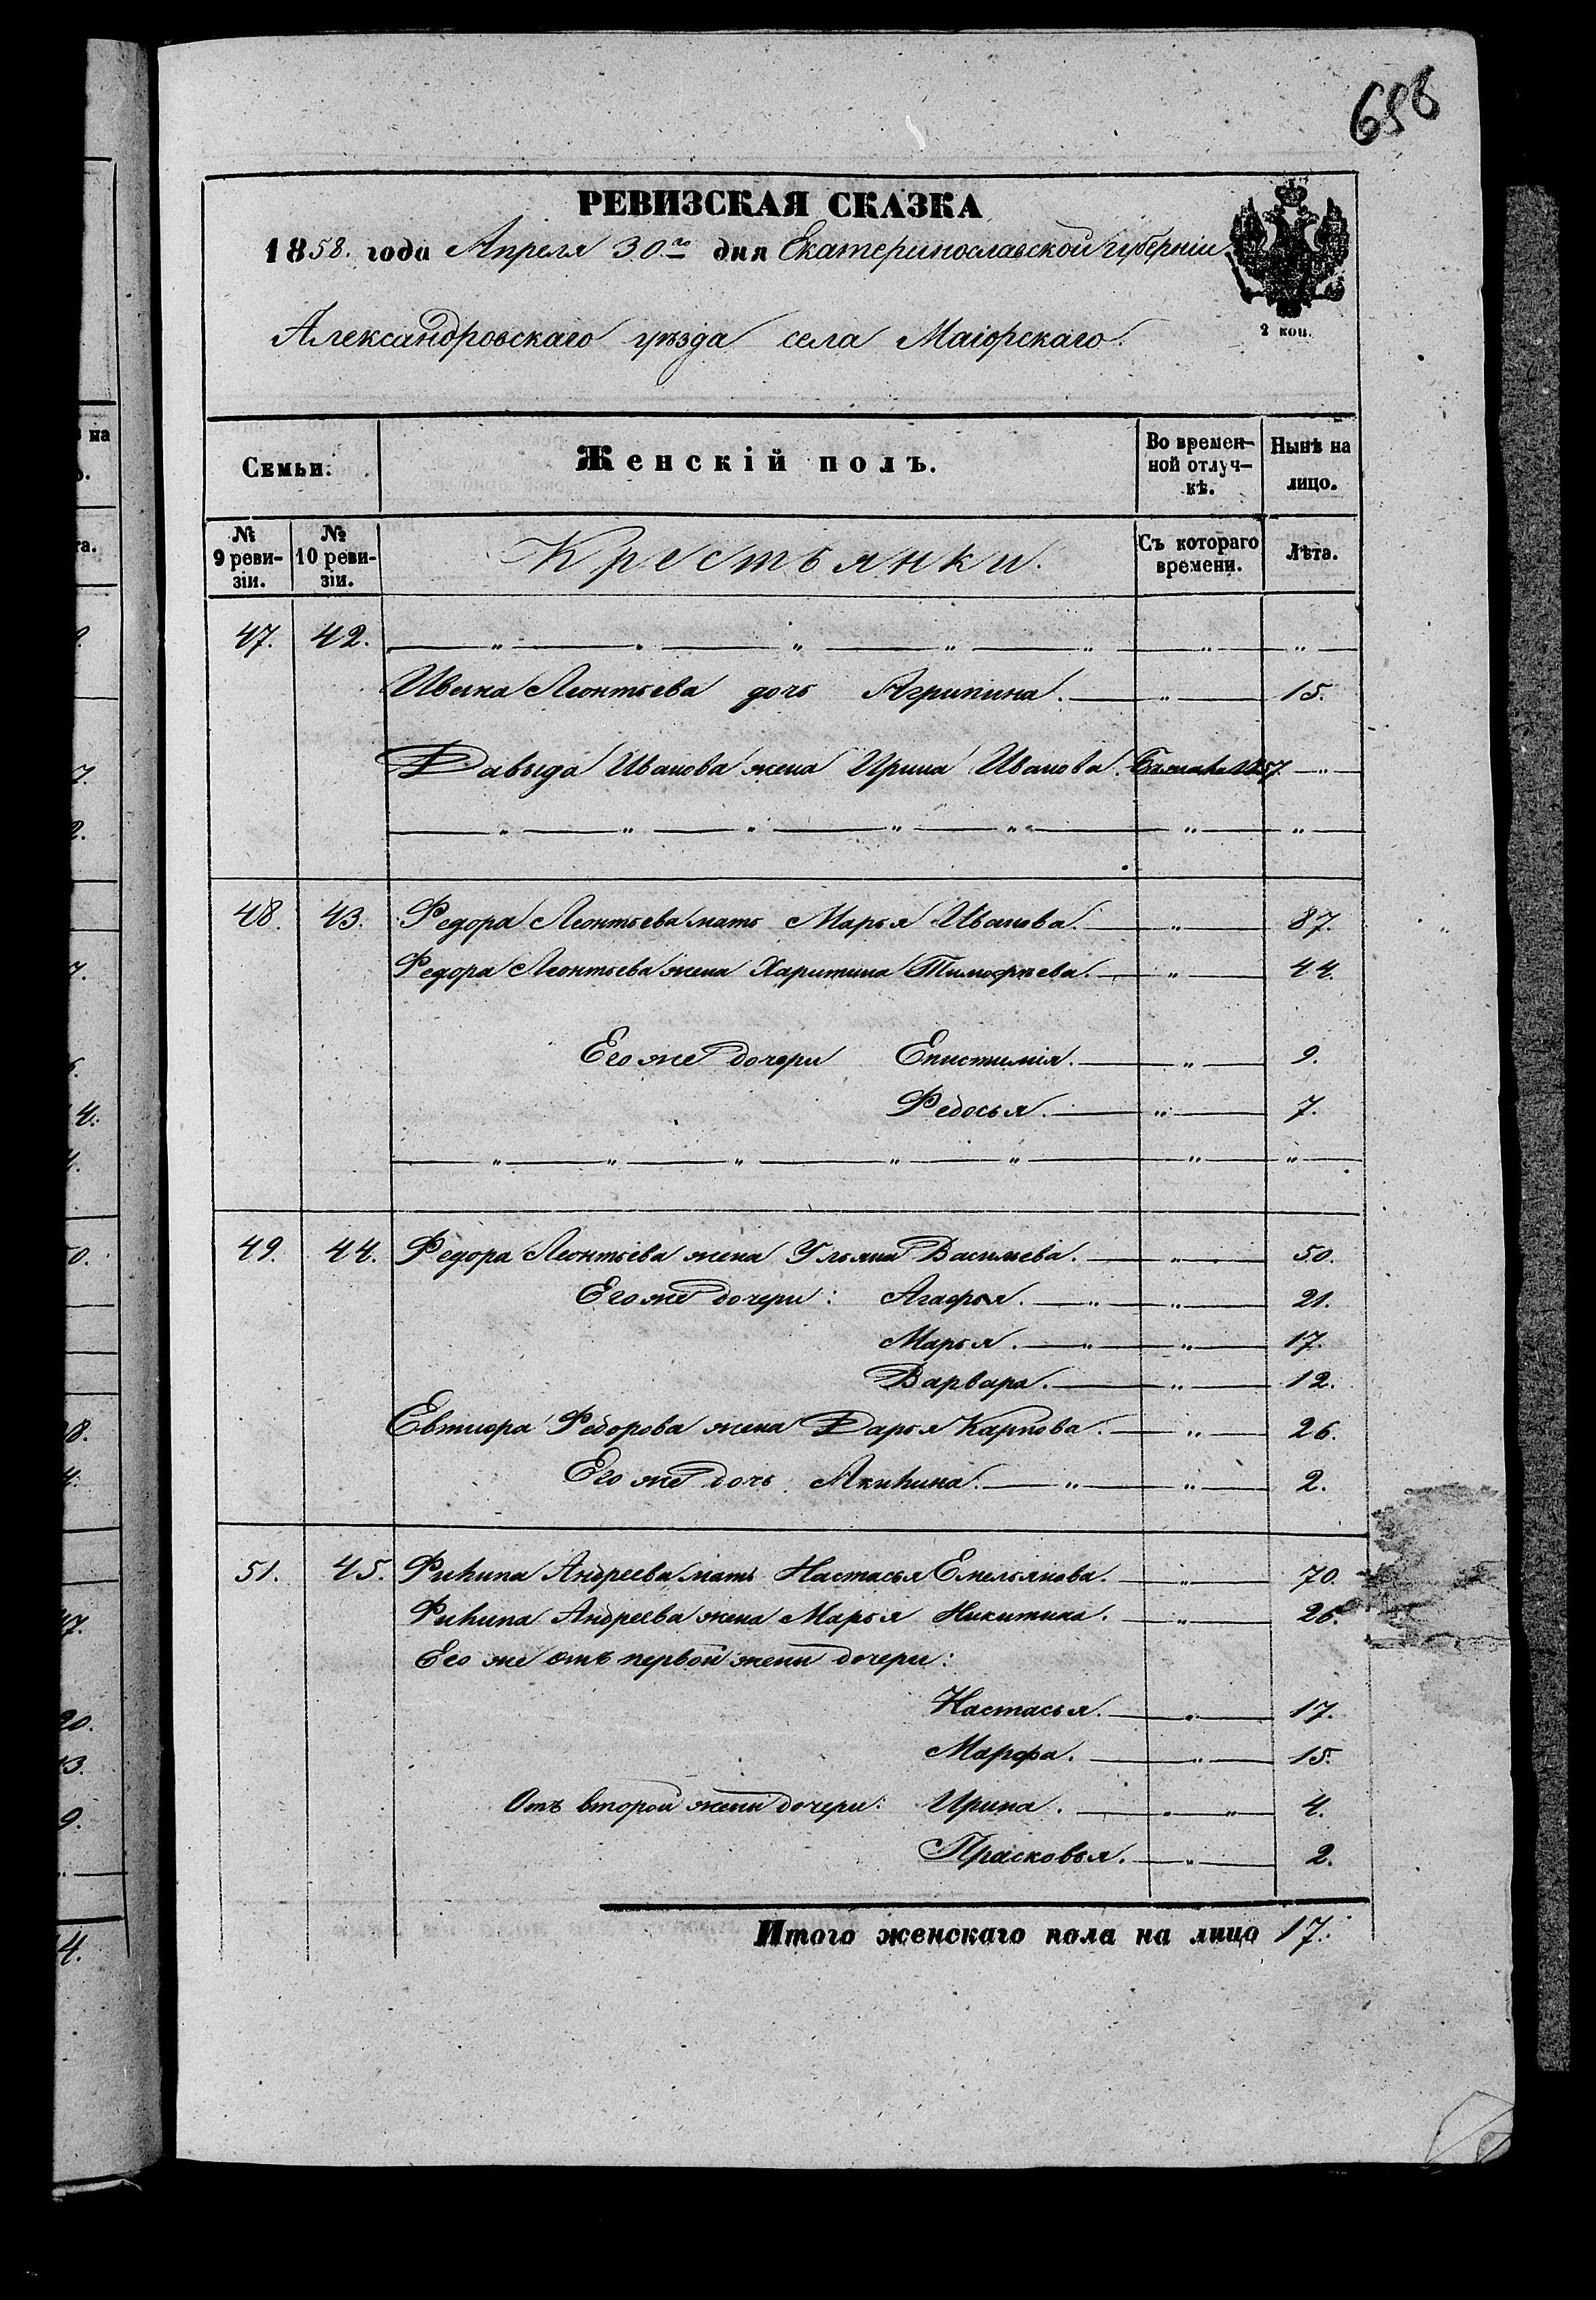 658
РЕВИЗСКАЯ СКАЗКА
1858. года Апреля 30го дня Екатеринославской губерніи
2 коп.
Александровскаго уѣзда села Маіорскаго.
Семьи. Женскій полъ. Во времен-ной отлуч-кѣ. Нынѣ на лицо.
№ 9 реви-зіи. № 10 реви-зіи. Крестьянки. Съ котораго времени. Лѣта.
47. 42. „ „ „ „ „ „ „
Ивана Леонтьева дочь Агрипина. „ 15.
Давыда Иванова жена Ирина Иванова. 1857. „
„ „ „ „ „ „ „
48. 43. Федора Леонтьева мать Марья Иванова. „ 87.
Федора Леонтьева жена Харитина Тимофѣева. „ 44.
Его же дочери Епистимія. „ 9.
Федосья. „ 7.
„ „ „ „ „ „ „
49. 44. Федора Леонтьева жена Ульяна Васильева. „ 50.
Его же дочери: Агафья. „ „ 21.
Марья. „ „ 17.
Варвара. „ 12.
Федорова жена Дарья Карпова. „ 26.
Его же дочь „ „ 2.
51. 45. Андреева мать Настасья Емельянова. „ 70.
Андреева жена Марья Никитина. „ 26.
Его же отъ первой жены дочери:
Настасья. „ 17.
Марфа. „ 15.
Отъ второй жены дочери: Ирина. „ „ 4.
Прасковья. „ 2.
Итого женскаго пола на лицо 17.